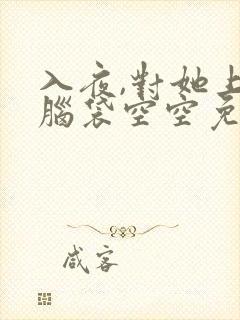 入夜,對她上
腦袋空空免
咸客